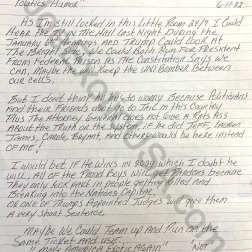 Politics Humor 6-11-22
As I'm still locked in this little room 24/7 I could
Hear the on the Hall last night during the
January 6th Hearings and Trump could look at
the Bright Side, we could Both Run for President
from Federal Prison as the Constitution says we
can, maybe the will keep the Uni Bomber between
our cells.
But I don't think he has to worry because Politicians
and there friends do go to Jail in this Country
Plus the Attorney General does not give a rats ass
about the truth on the system, if he did Jeff, Lauren
James, Carole, Bryant, and others would be here instead
of me!
I would bet if he wins in 2024 which I doubt he
will, all of the Proud Boys will get Pardons because
they only in people getting killed and
Breaking into the Nations Capitol
or one of Trumps Appointed Judges will give them
a very short sentence.
Maybe we could team up and run on the
same ticket and use
"Make America Exotic Again" Not